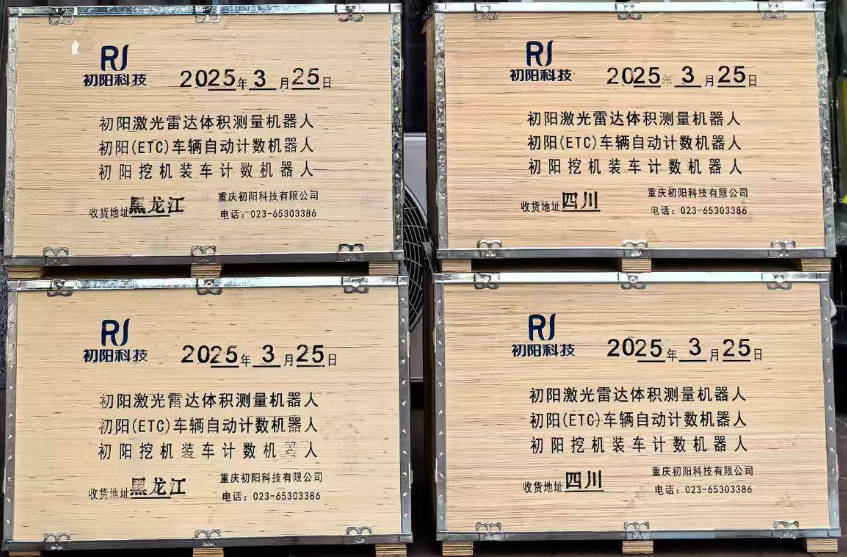 初阳科技 2025年3月25日
初阳激光雷达体积测量机器人
初阳(ETC)车辆自动计数机器人
初阳挖机装车计数机器人
重庆初阳科技有限公司
收货地址黑龙江 电话：023-65303386
初阳科技 2025年3月25日
初阳激光雷达体积测量机器人
初阳(ETC)车辆自动计数机器人
初阳挖机装车计数机器人
重庆初阳科技有限公司
收货地址四川 电话：023-65303386
初阳科技 2025年3月25日
初阳激光雷达体积测量机器人
初阳(ETC)车辆自动计数机器人
初阳挖机装车计数机器人
重庆初阳科技有限公司
收货地址黑龙江 电话：023-65303386
初阳科技 2025年3月25日
初阳激光雷达体积测量机器人
初阳(ETC)车辆自动计数机器人
初阳挖机装车计数机器人
重庆初阳科技有限公司
收货地址四川 电话：023-65303386